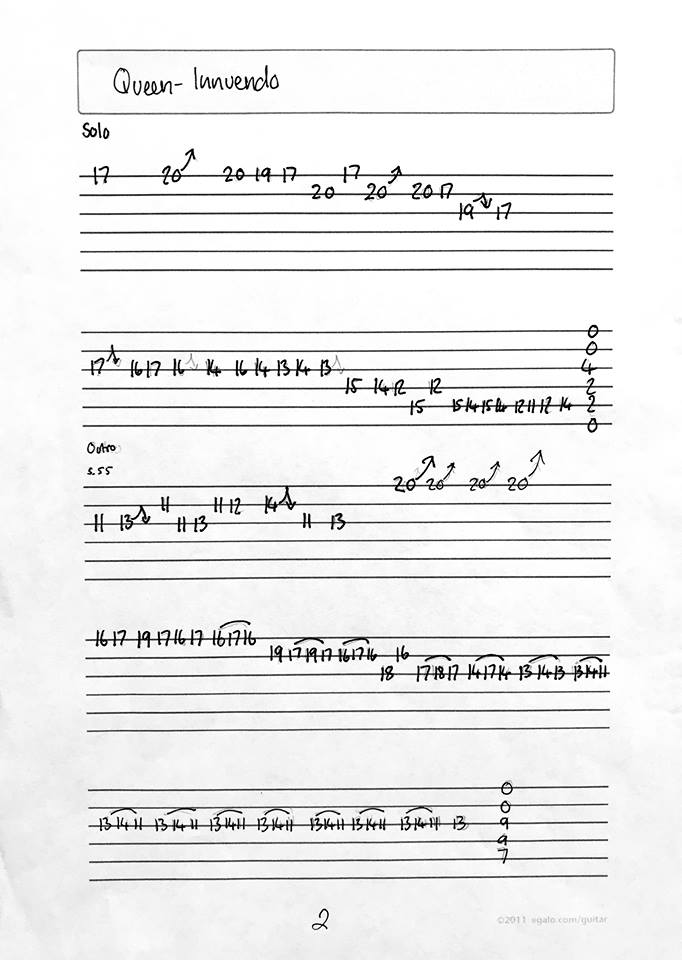 Queen- Innuendo
Solo
17 20 20 19 17 17
20 20 20 17
19 17
0
0
17 16 17 16 14 16 14 13 14 13 4
15 14 12 12 2
15 15 14 15 14 12 11 12 14 2
0
Outro
5.55
20 20 20 20
11 11 12 14
11 13 11 13 11 13
16 17 19 17 16 17 16 17 16
19 17 19 17 16 17 16 16
18 17 18 17 14 17 14 13 14 13 13 14 11
0
0
13 14 11 13 14 11 13 14 11 13 14 11 13 14 11 13 14 11 13 14 11 13 9
9
7
2
©2011 egalo.com/guitar